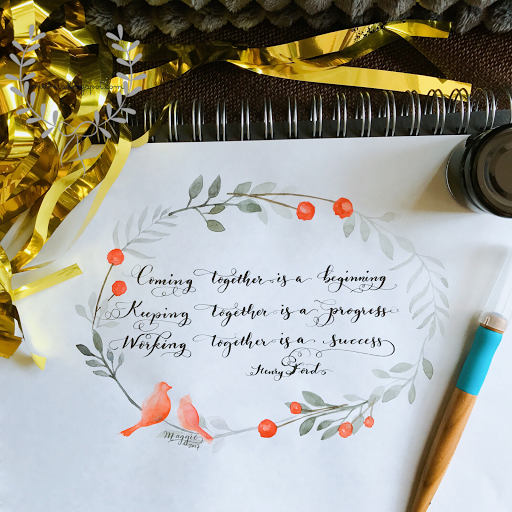 Coming together is a beginning
Keeping together is a progress
Working together is a success
Henry Ford
Maggie
2017